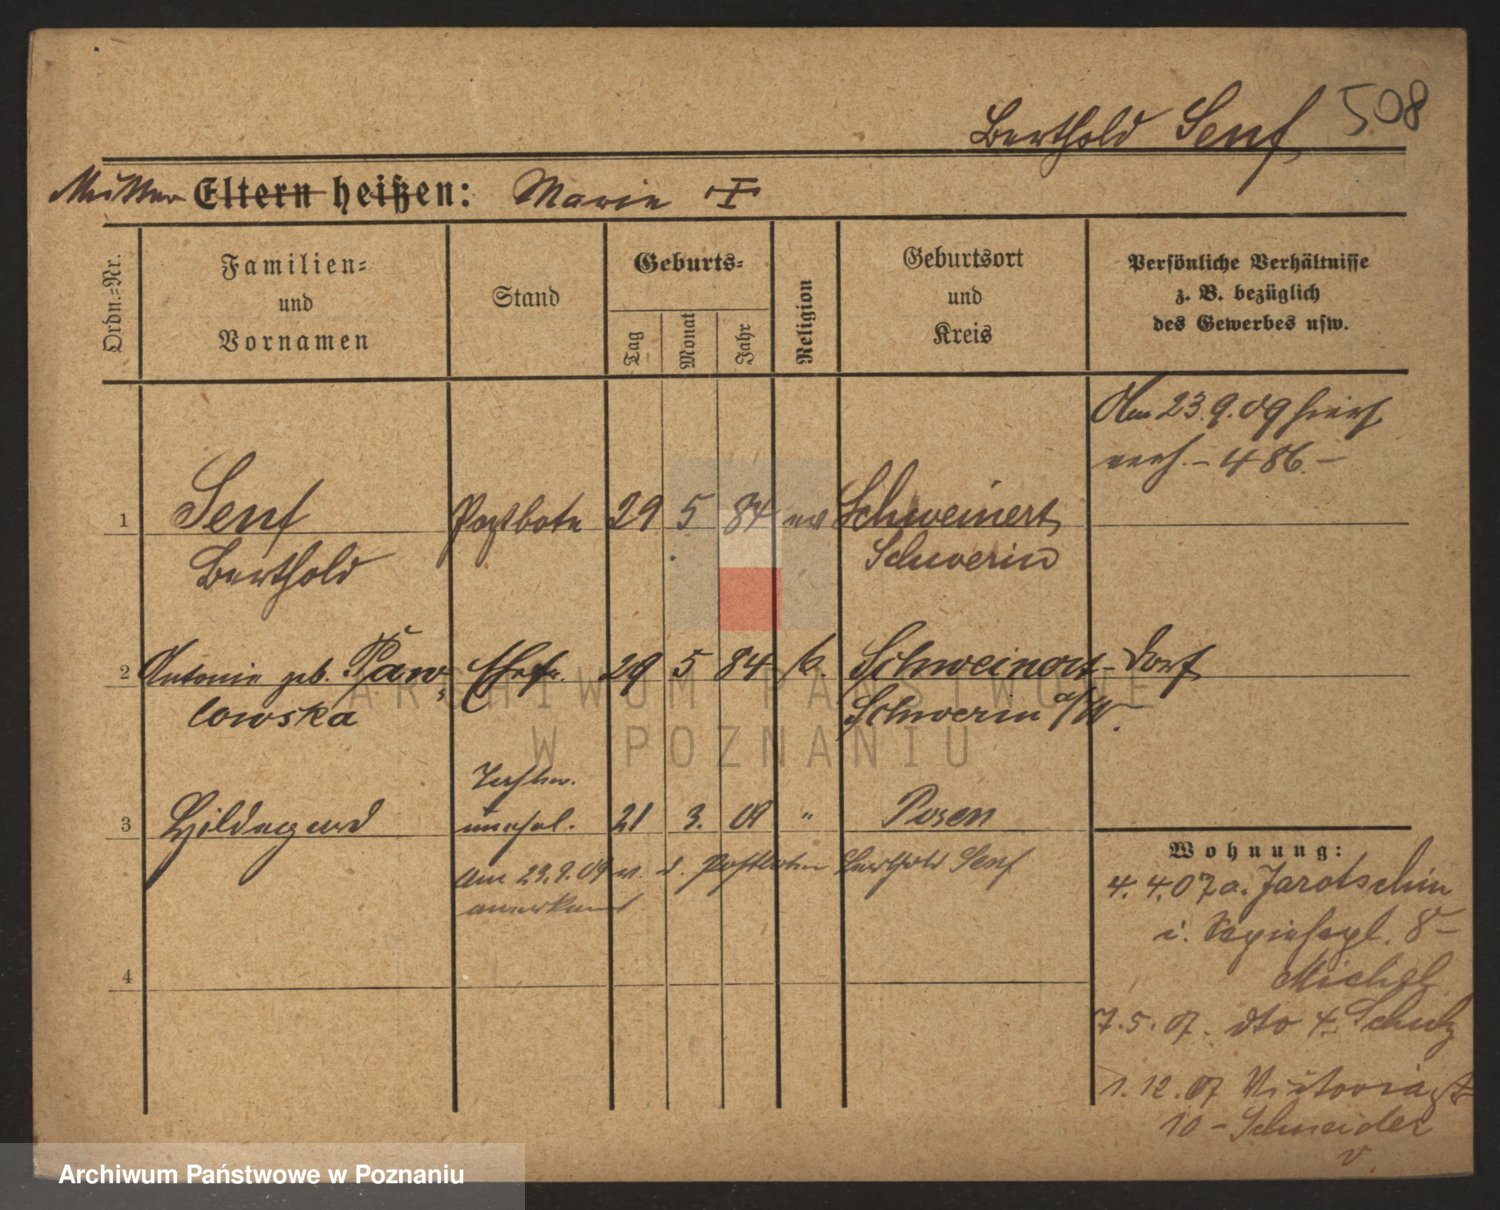 508
Berthold Senf
Mutter Eltern heißen: Marie †
Ordn.=Nr.
Familien=
und
Vornamen
Stand
Geburts=
Tag
Monat
Jahr
Religion
Geburtsort
und
Kreis
Persönliche Verhältnisse
z. B. bezüglich
des Gewerbes usw.
Am 23.9.09 hier
verh. – 486. –
1 Senf Postbote 29 5 84 ev Schweinert
Berthold Schwerin
2 Antonie geb. Paw= Ehefr. 29 5 84 k. Schweinert-Dorf
lowska Schwerin a/W.
Tochter
3 Hildegard unehel. 21 3. 09 " Posen
Am 29.9.09 v. d. Postboten Berthold Senf
anerkannt
4
Wohnung:
4.4.07 a. Jarotschin
i. 8 –
Michel
7.5.07. dto 4. Schulz
1.12.07 Victoriastr
10 – Schneider
v.
ARCHIWUM PAŃSTWOWE
W POZNANIU
Archiwum Państwowe w Poznaniu